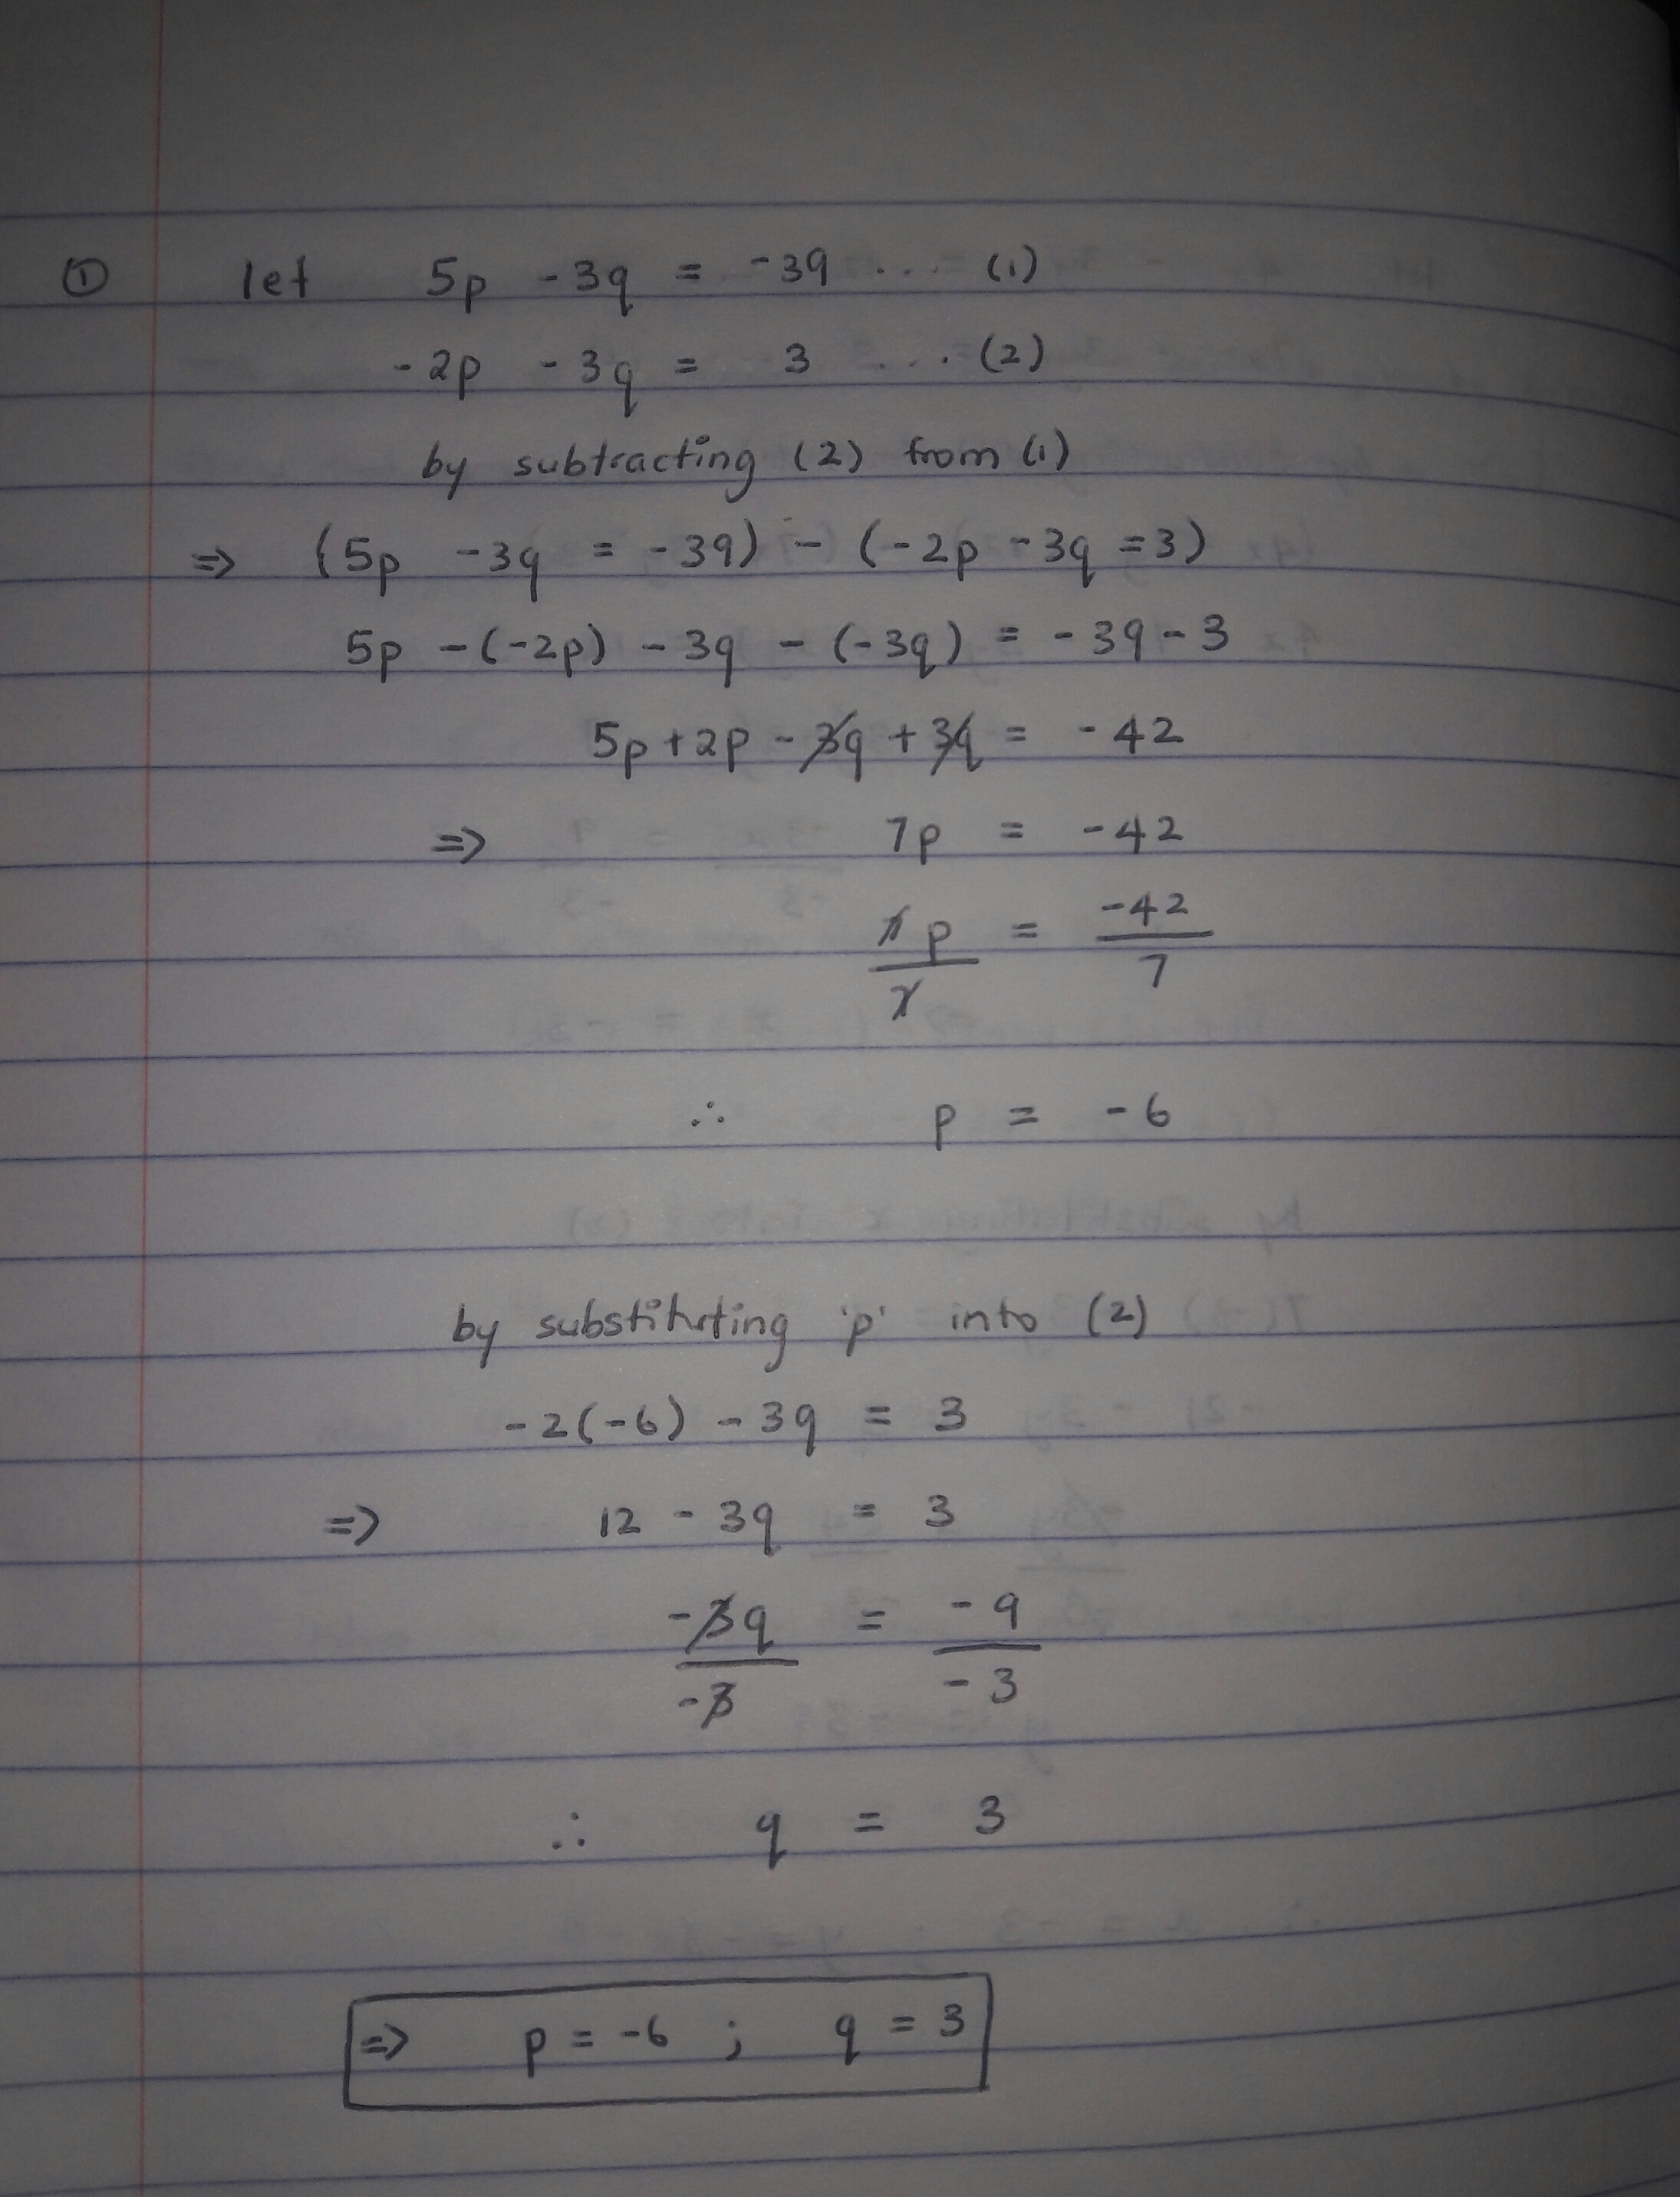 ① let 5p - 3q = -39 ... (1)
-2p - 3q = 3 ... (2)
by subtracting (2) from (1)
=> (5p - 3q = -39) - (-2p - 3q = 3)
5p - (-2p) - 3q - (-3q) = -39 - 3
5p + 2p - 3q + 3q = -42
=> 7p = -42
7p/7 = -42/7
∴ p = -6
by substituting 'p' into (2)
-2(-6) - 3q = 3
=> 12 - 3q = 3
-3q/-3 = -9/-3
∴ q = 3
=> p = -6 ; q = 3